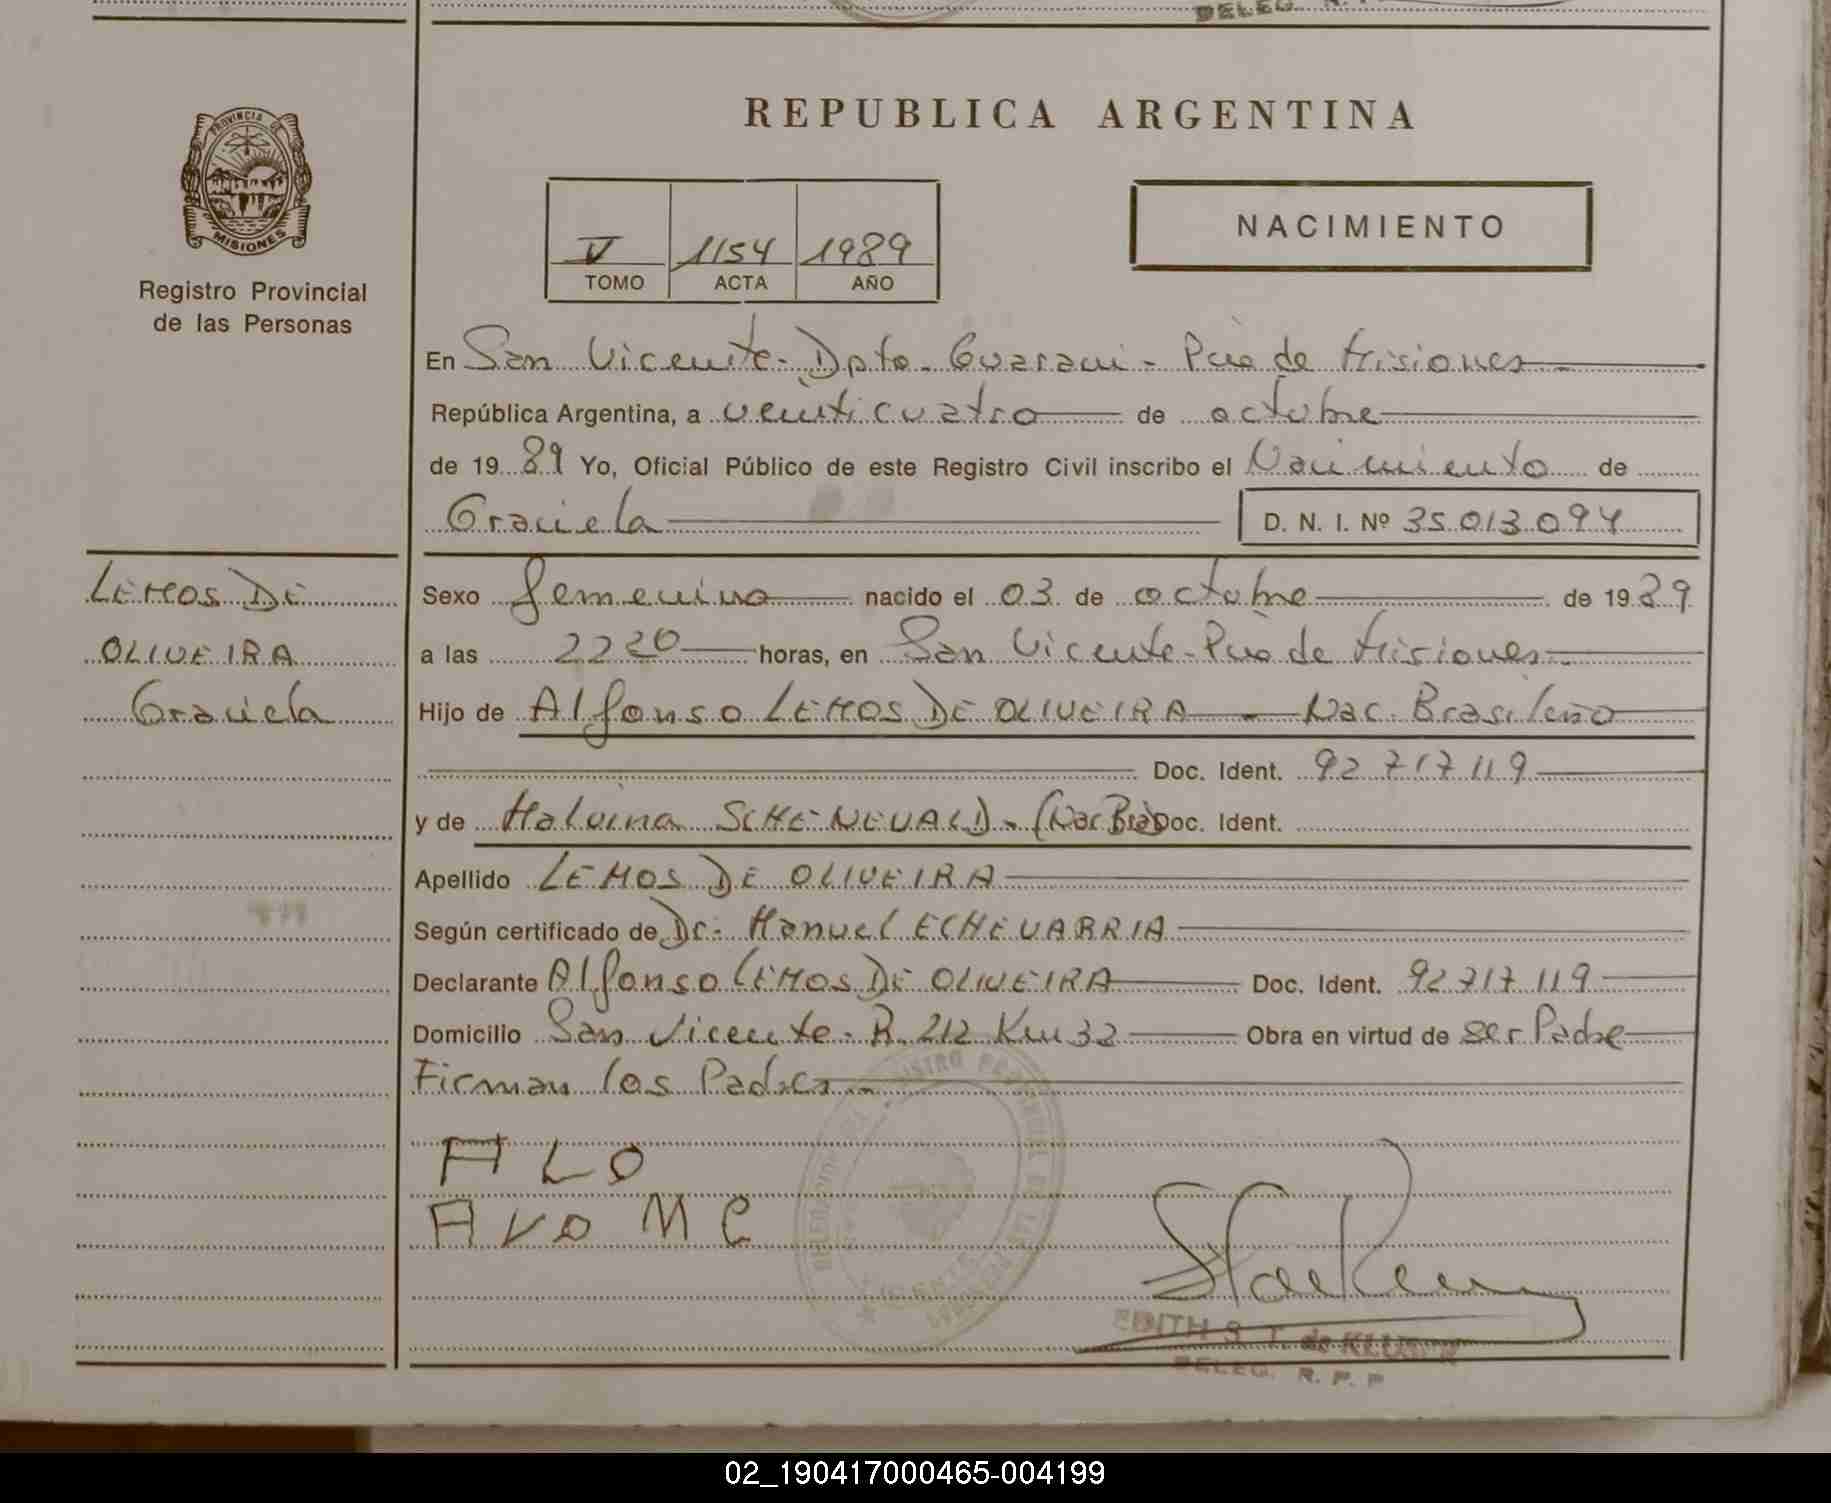 DELEG. R.
REPUBLICA ARGENTINA
PROVINCIA DE
MISIONES
Registro Provincial
de las Personas
V 1154 1989
TOMO ACTA AÑO
NACIMIENTO
En San Vicente - Dpto. Guarani - Pcia de Misiones
República Argentina, a veinticuatro de octubre
de 1989 Yo, Oficial Público de este Registro Civil inscribo el Nacimiento de
Graciela D. N. I. Nº 35.013.094
LEMOS DE
OLIVEIRA
Graciela
Sexo femenino nacido el 03 de octubre de 1989
a las 2220 horas, en San Vicente - Pcia de Misiones
Hijo de Alfonso LEMOS DE OLIVEIRA - Nac. Brasileño
Doc. Ident. 92 717 119
y de Malvina SCHENEVALD - (Nac Bra) Doc. Ident.
Apellido LEMOS DE OLIVEIRA
Según certificado de Dr. Manuel ECHEVARRIA
Declarante Alfonso LEMOS DE OLIVEIRA Doc. Ident. 92 717 119
Domicilio San Vicente - R. 212 Km 32 Obra en virtud de ser Padre
Firman los Padres
A L O
A V O M C
EDITH S. T. de
DELEG. R. P. P
02_190417000465-004199